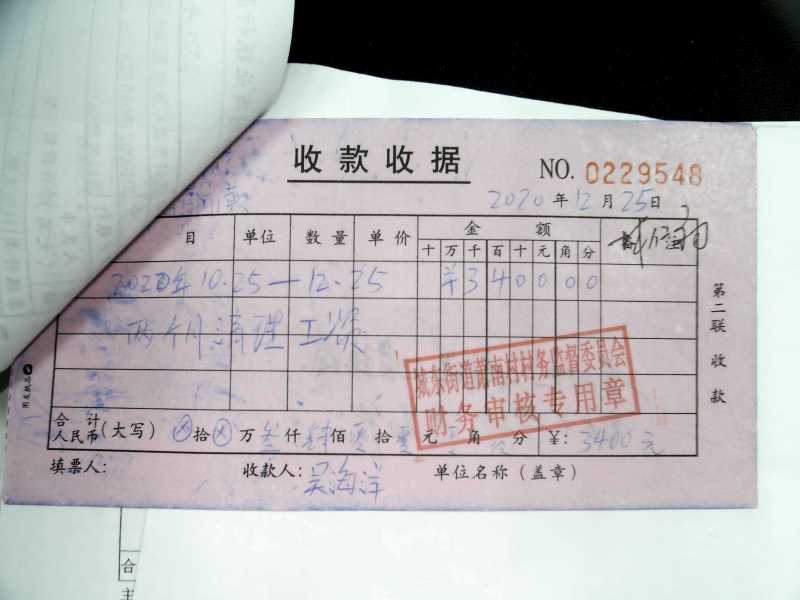 收款收据
NO. 0229548
2020年12月25日
目 单位 数量 单价 金额
十 万 千 百 十 元 角 分
2020年10.25—12.25 ¥ 3 4 0 0 0 0
两个月清理工资
第二联 收款
城东街道 南村村务监督委员会
财务审核专用章
合计 人民币(大写) ⊗拾⊗万叁仟肆佰零拾零元 角 分 ¥: 3400元
填票人: 收款人: 吴海洋 单位名称(盖章)
合
主